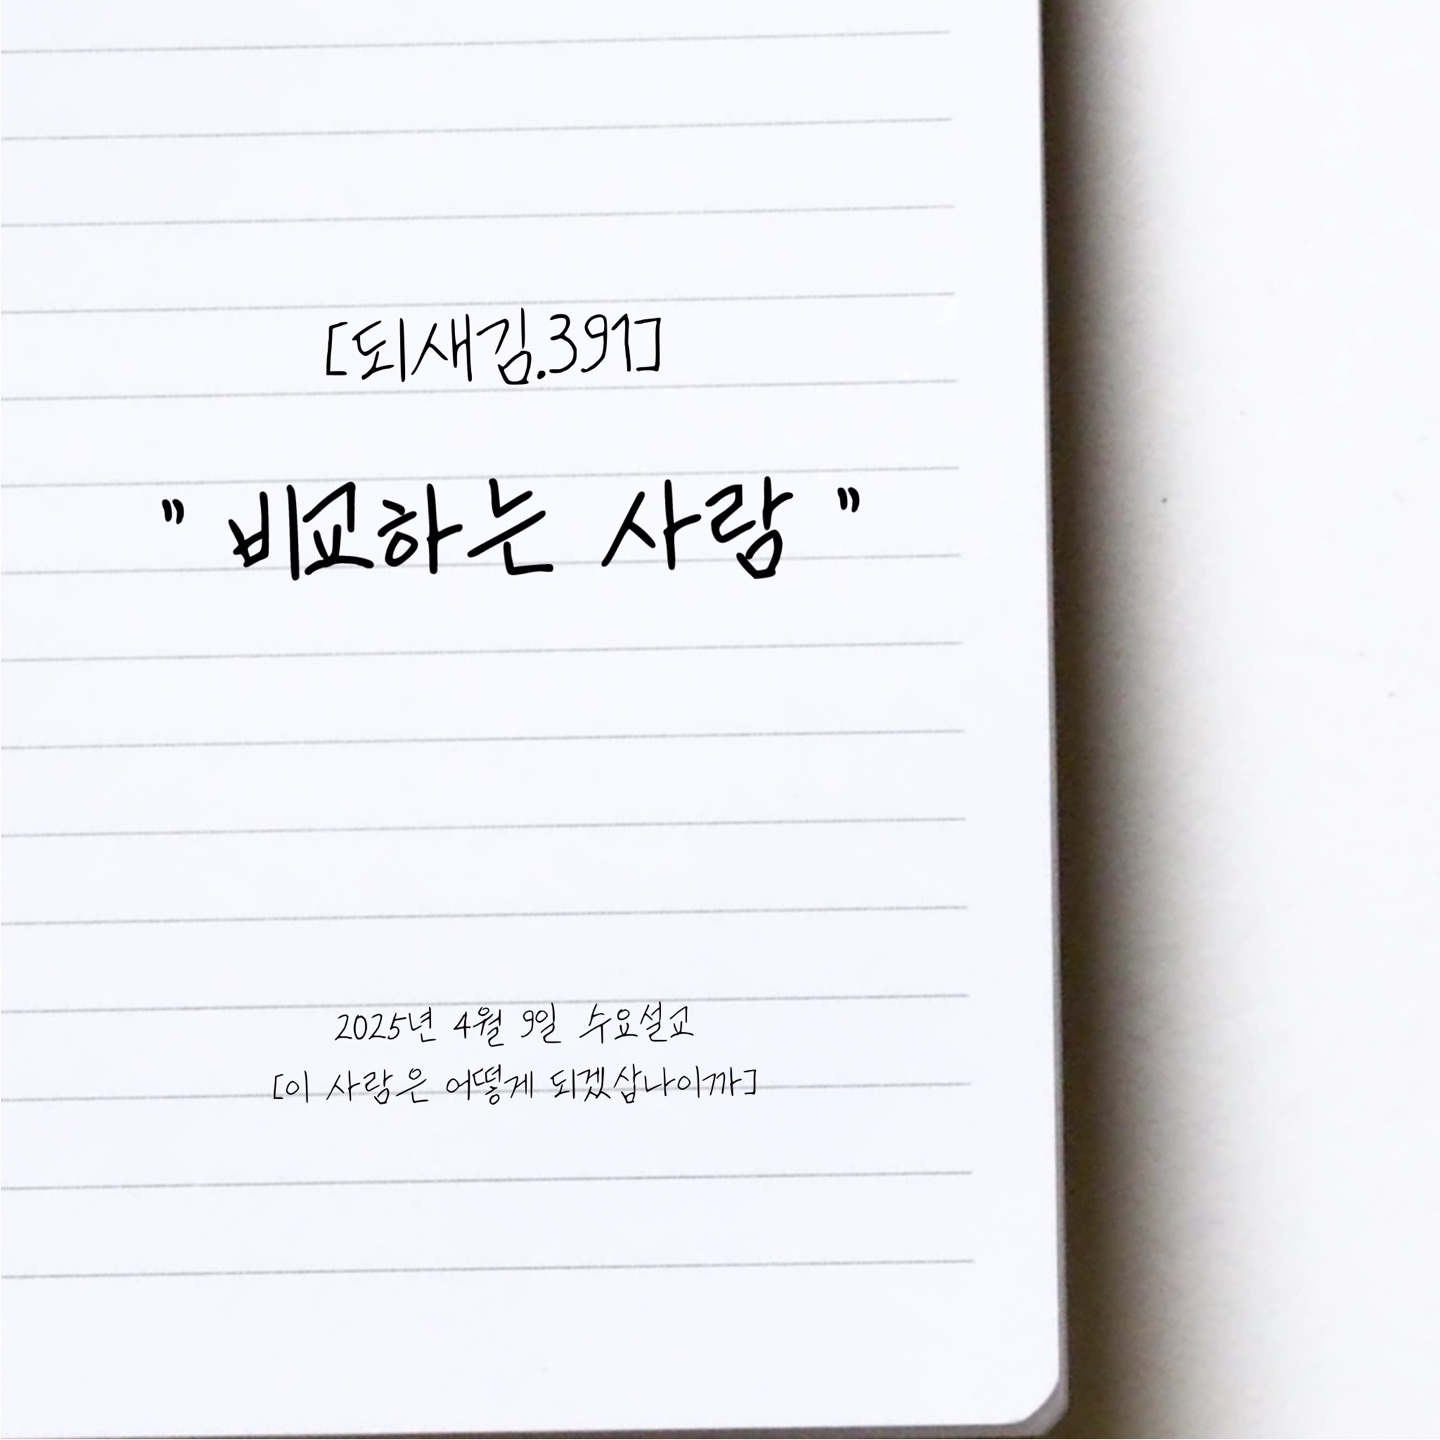 [되새김.391]
" 비교하는 사람 "
2025년 4월 9일 수요설교
[이 사람은 어떻게 되겠삽나이까]